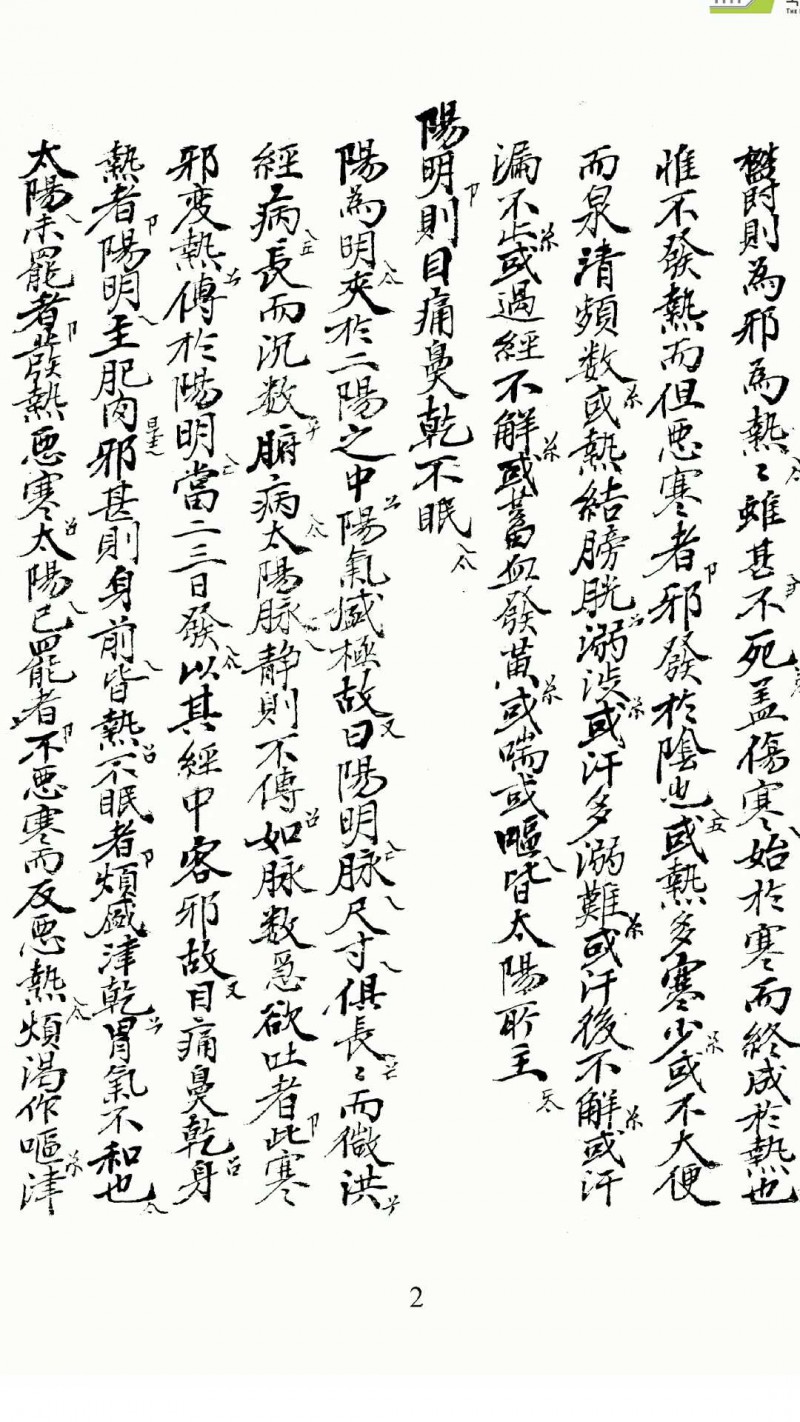 欝則為邪為熱〻雖甚不死盖傷寒始於寒而終成於熱也
惟不發熱而但悪寒者邪發於陰也或熱多寒少或不大便
而泉清頻数或熱結膀胱溺渋或汗多溺難或汗後不解或汗
漏不止或過經不解或蓄血發黄或喘或嘔皆太陽所主
陽明則目痛鼻乾不眠
陽為明夾於二陽之中陽氣盛極故曰陽明脉尺寸俱長〻而微洪
經病長而沉数腑病太陽脉静則不傳如脉数急欲吐者此寒
邪变熱傳於陽明當二三日發以其經中客邪故目痛鼻乾身
熱者陽明主肌肉邪甚則身前皆熱不眠者煩盛津乾胃氣不和也
太陽未罷者發熱悪寒太陽已罷者不悪寒而反悪熱煩渴作嘔津
2